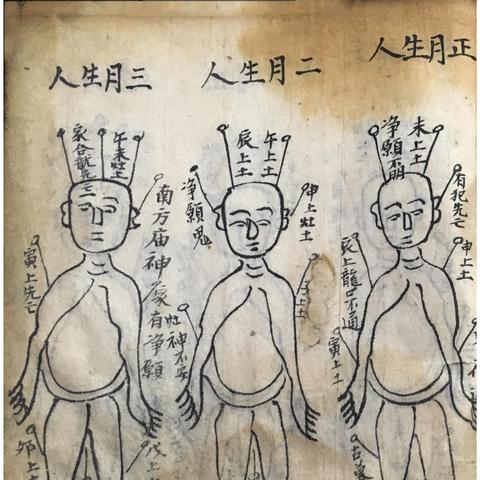 正月生人
未上土
净願不明
有犯先亡
申上土
辰上龍口不通
寅上土
古墓
二月生人
午上土
辰上土
净願鬼
申上灶土
子上土
灶神不安
三月生人
午未灶土
家合
先亡
南方庙神
家有净願
寅上先亡
卯上土
戌上土